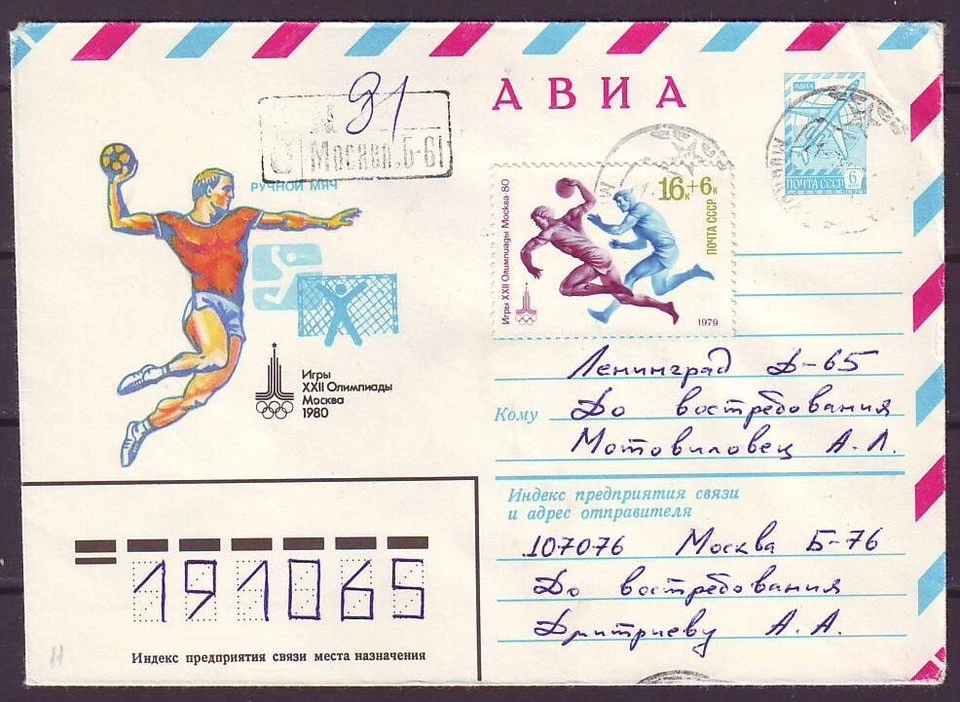 АВИА
№ 91
Москва, Б-61
РУЧНОЙ МЯЧ
Игры
XXII Олимпиады
Москва
1980
Игры XXII Олимпиады Москва 80
16к+6к
ПОЧТА СССР
1979
АВИА
ПОЧТА СССР 6
Ленинград Д-65
Кому До востребования
Мотовиловец А.Л.
Индекс предприятия связи
и адрес отправителя
107076 Москва Б-76
До востребования
Дмитриеву А.А.
191065
Индекс предприятия связи места назначения